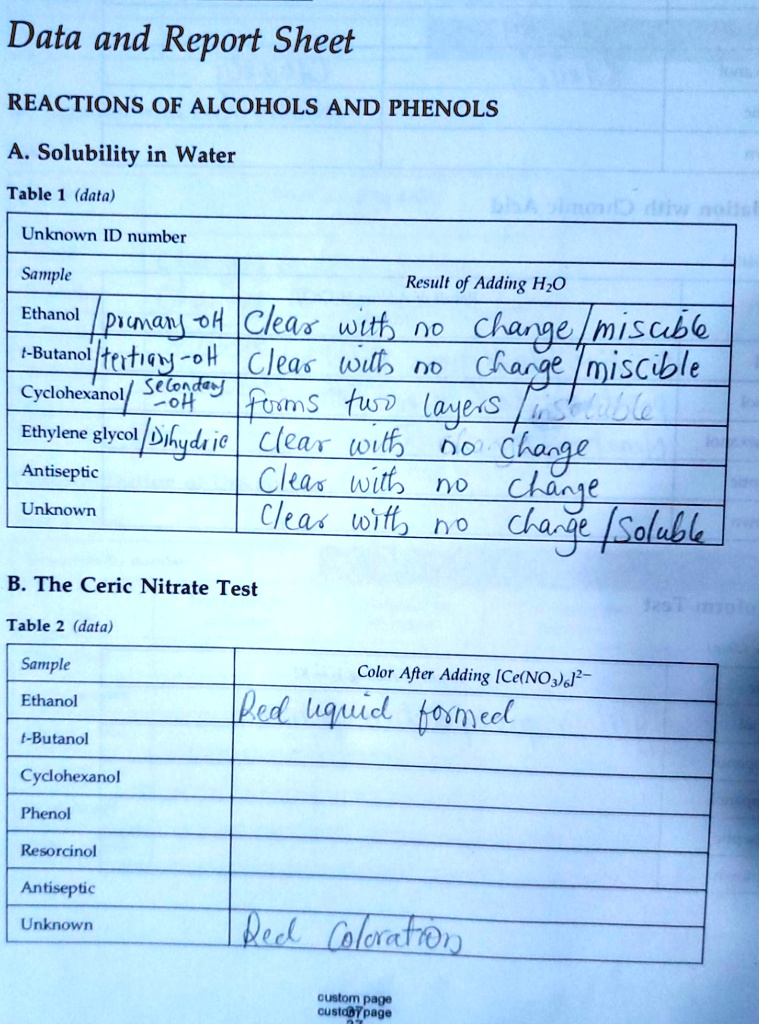 Data and Report Sheet
REACTIONS OF ALCOHOLS AND PHENOLS
A. Solubility in Water
Table 1 (data)
Unknown ID number
Sample Result of Adding H₂O
Ethanol /primary -OH Clear with no change/miscible
t-Butanol/tertiary-OH Clear with no change/miscible
Cyclohexanol/ Secondary -OH forms two layers /insoluble
Ethylene glycol/Dihydric Clear with no change
Antiseptic Clear with no change
Unknown Clear with no change/Soluble
B. The Ceric Nitrate Test
Table 2 (data)
Sample Color After Adding [Ce(NO₃)₆]²⁻
Ethanol Red liquid formed
t-Butanol
Cyclohexanol
Phenol
Resorcinol
Antiseptic
Unknown Red Coloration
custom page
custom page